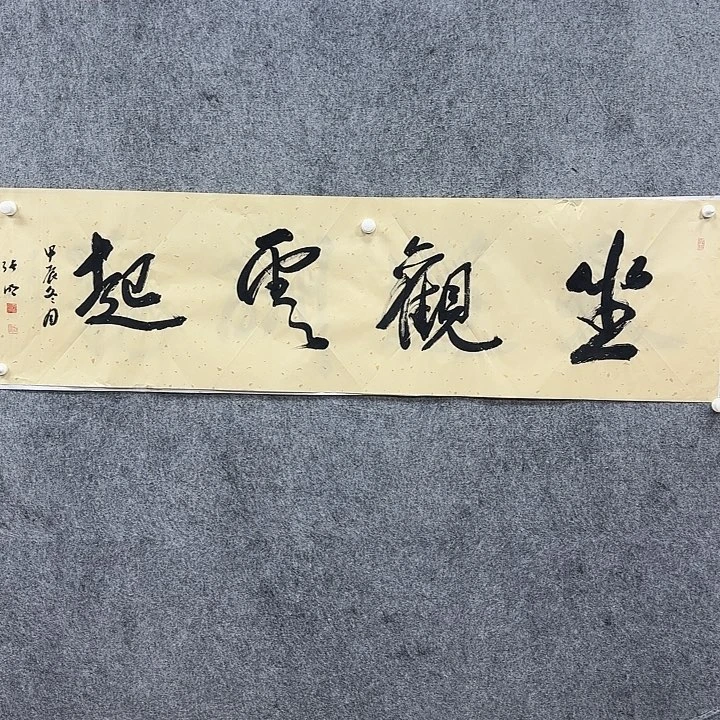 坐觀雲起
甲辰冬月
张